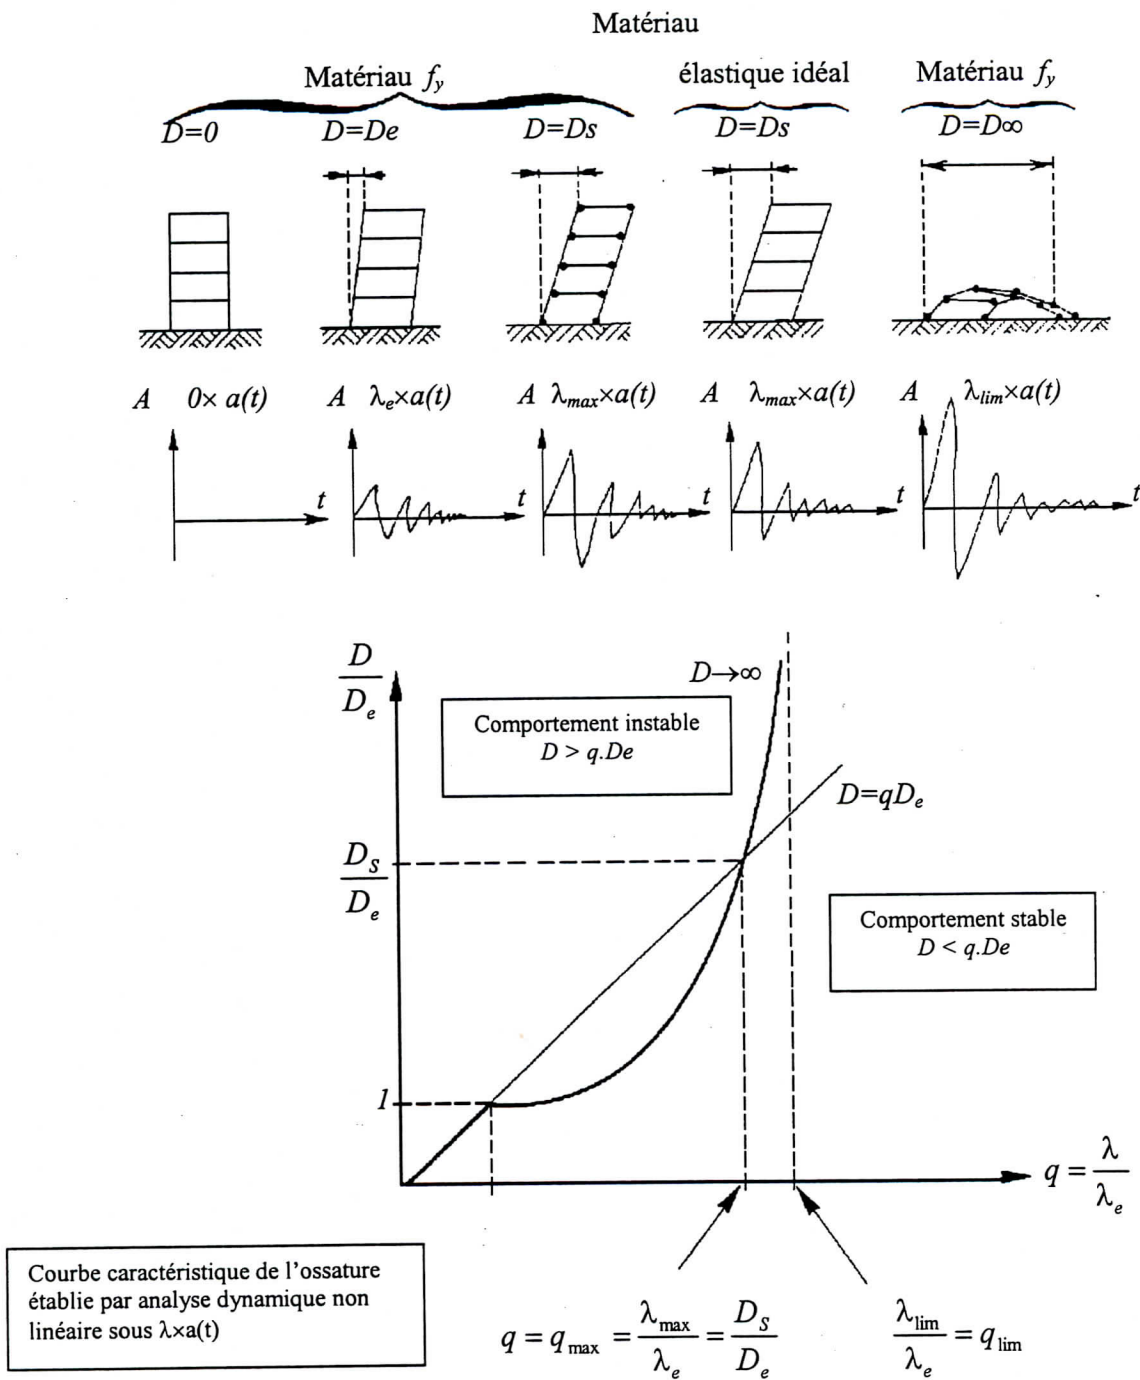 Matériau
Matériau f_y
élastique idéal
Matériau f_y
D=0
D=De
D=Ds
D=Ds
D=D∞
A 0× a(t)
A λ_e×a(t)
A λ_max×a(t)
A λ_max×a(t)
A λ_lim×a(t)
t
t
t
t
t
D/D_e
D→∞
Comportement instable
D > q.De
D=qD_e
D_S/D_e
Comportement stable
D < q.De
1
q = λ/λ_e
Courbe caractéristique de l'ossature
établie par analyse dynamique non
linéaire sous λ×a(t)
q = q_max = λ_max/λ_e = D_S/D_e
λ_lim/λ_e = q_lim